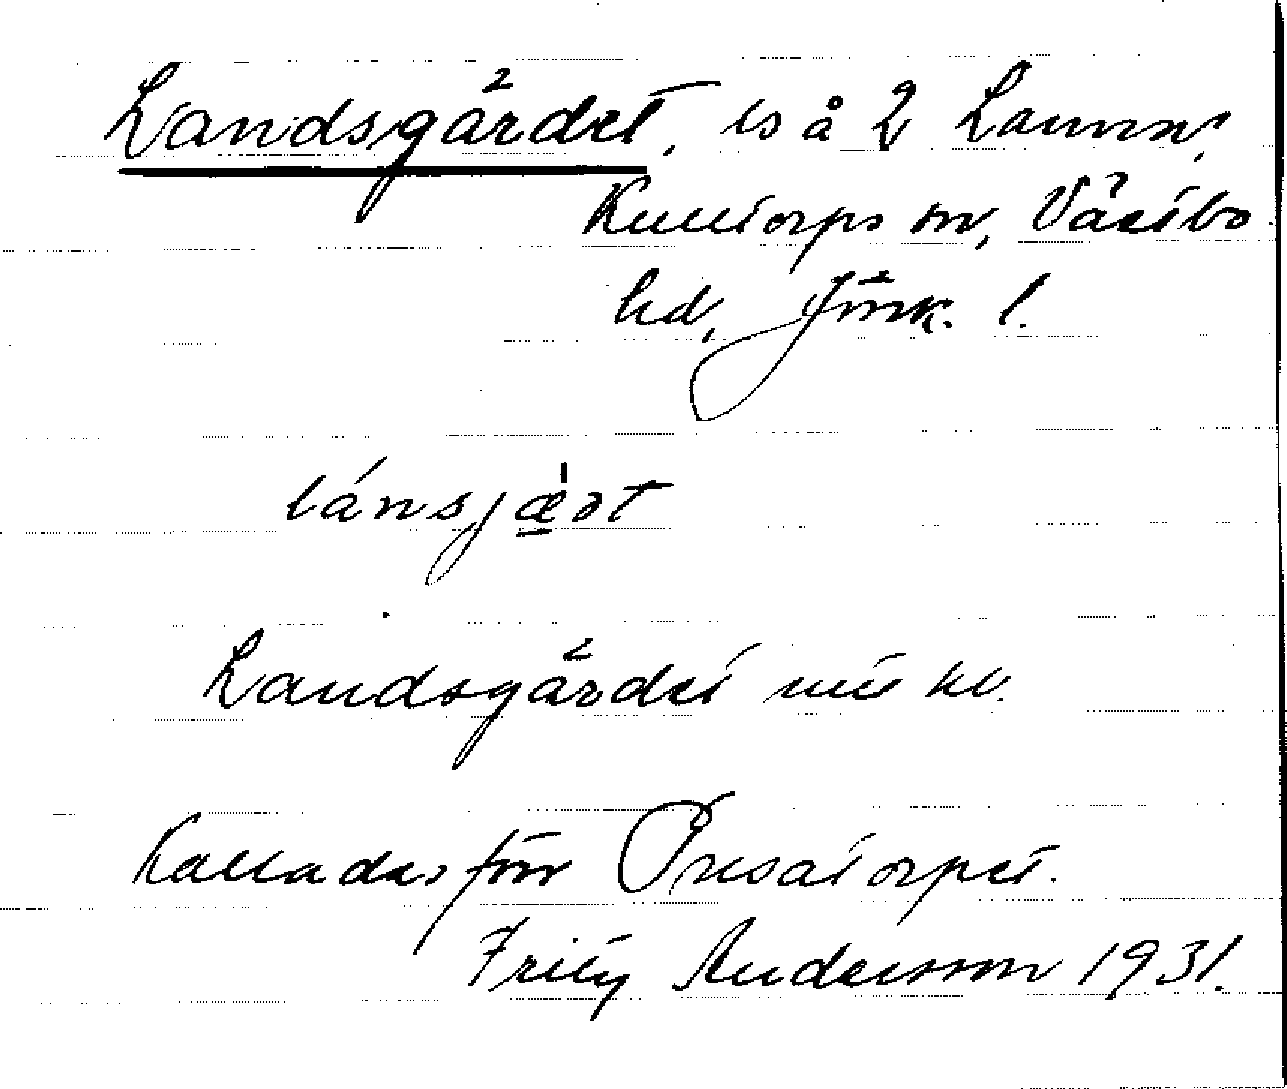 Landsgärdet, ls å 2 Lanna,
Kulltorps sn, Västbo
hd, Jönk. l.
lánsjæ̱ət
Landsgärdet
Kallades förr Presatorpet.
Fritz Andersson 1931.